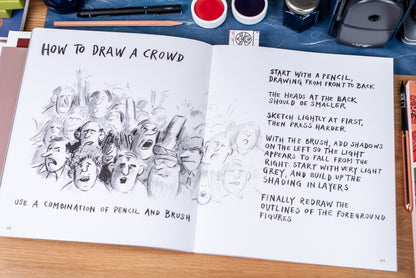 HOW TO DRAW A CROWD
USE A COMBINATION OF PENCIL AND BRUSH
START WITH A PENCIL,
DRAWING FROM FRONT TO BACK
THE HEADS AT THE BACK
SHOULD BE SMALLER
SKETCH LIGHTLY AT FIRST,
THEN PRESS HARDER
WITH THE BRUSH, ADD SHADOWS
ON THE LEFT SO THE LIGHT
APPEARS TO FALL FROM THE
RIGHT. START WITH VERY LIGHT
GREY, AND BUILD UP THE
SHADING IN LAYERS
FINALLY REDRAW THE
OUTLINES OF THE FOREGROUND
FIGURES